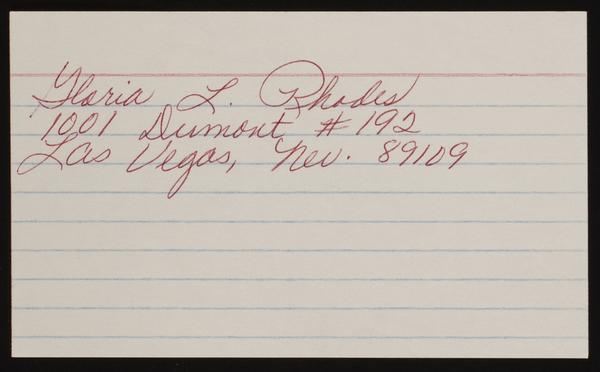 Gloria L. Rhodes
1001 Dumont # 192
Las Vegas, Nev. 89109